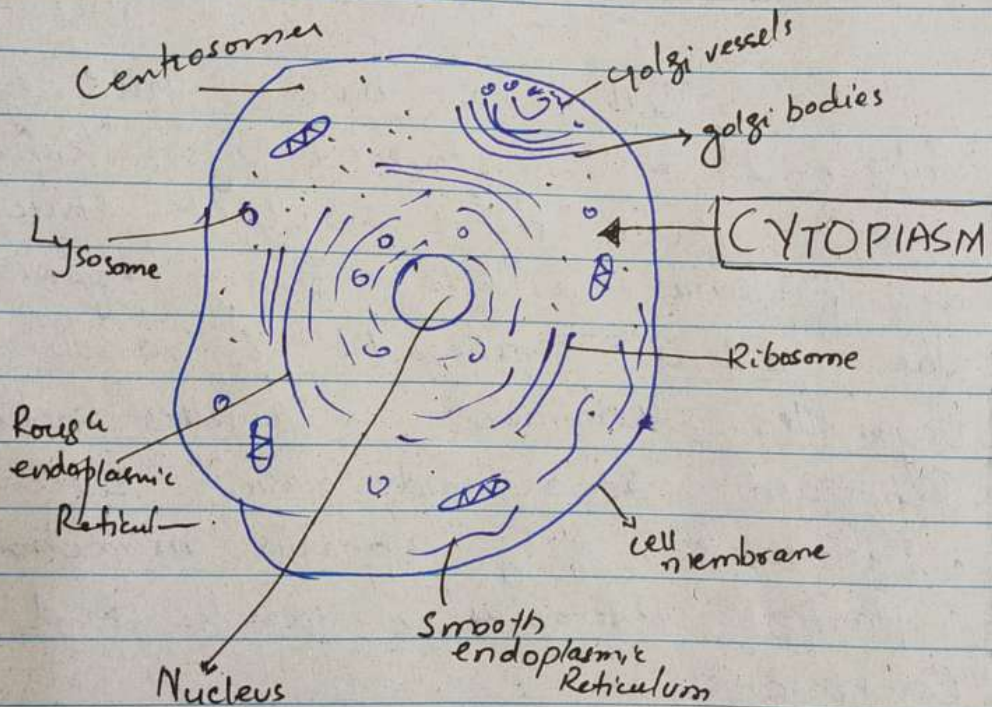 Centrosomes
Golgi vessels
golgi bodies
Lysosome
CYTOPIASM
Ribosome
Rough
endoplasmic
Reticul
cell
membrane
Smooth
endoplasmic
Reticulum
Nucleus